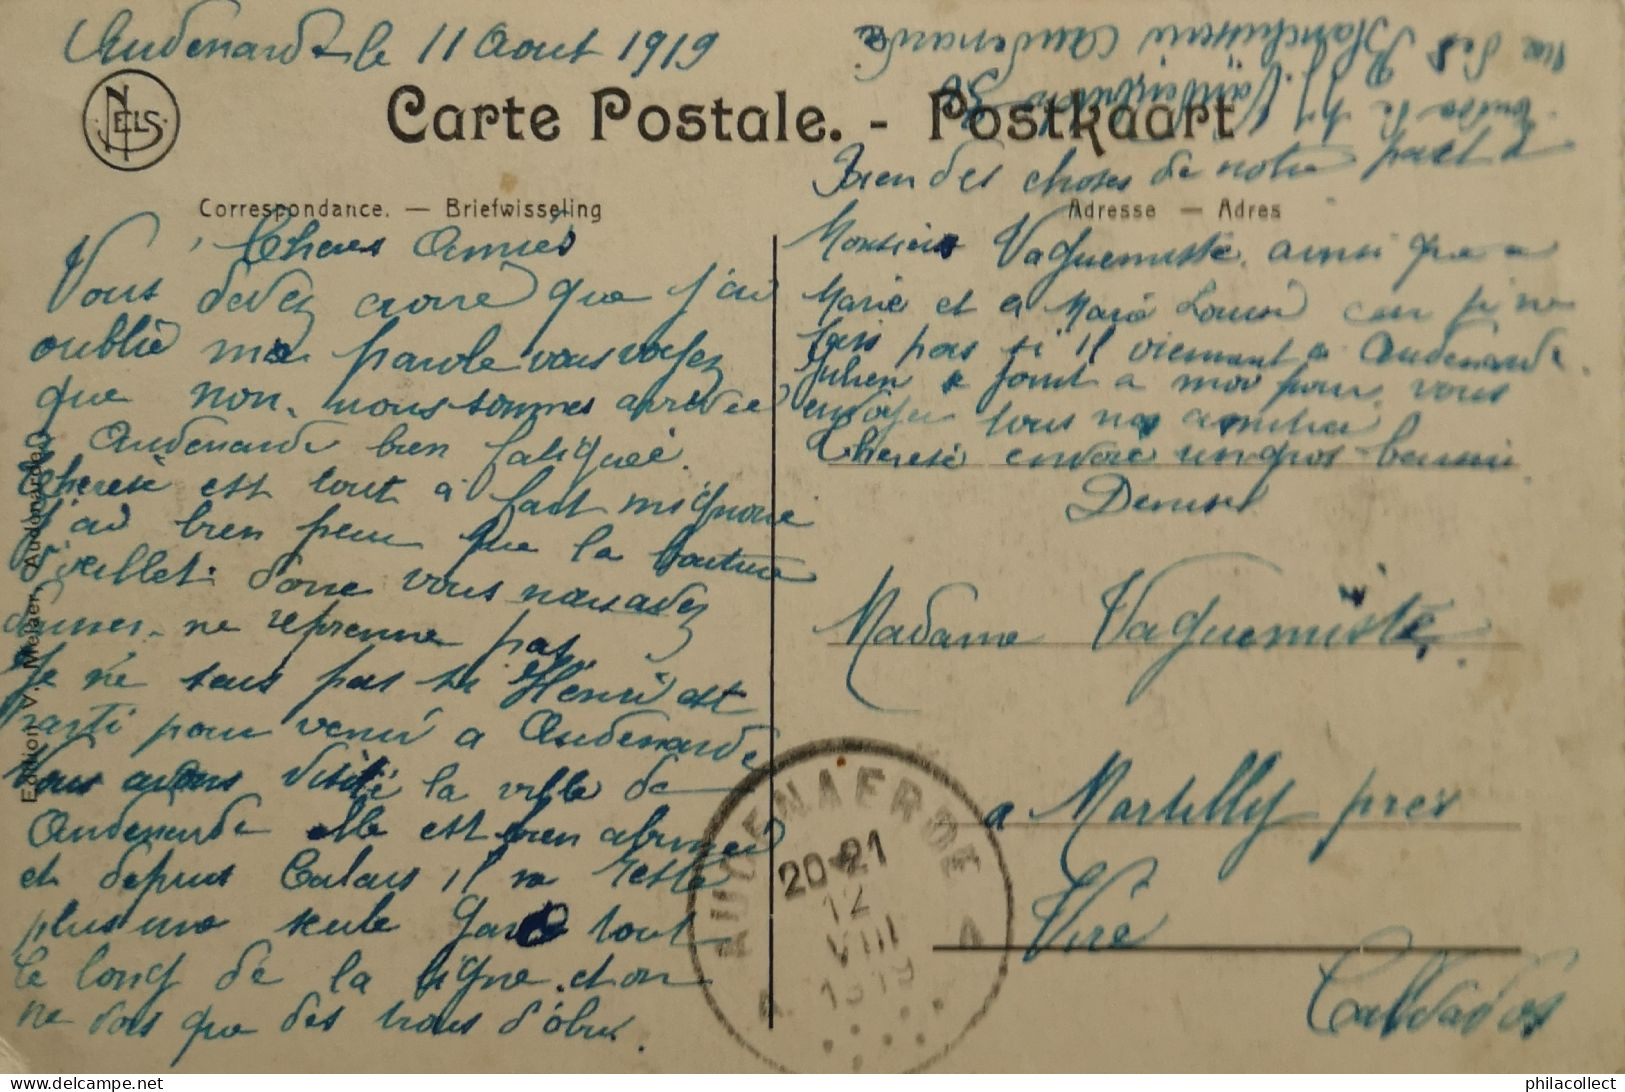 Audenarde le 11 Aout 1919
NELS
Carte Postale. - Postkaart
Correspondance. — Briefwisseling
Adresse — Adres
Edition V. Melaer, Audenarde
Chers Amies
Vous devez croire que j'ai
oublié ma parole vous voyez
que non. nous sommes arrivée
à Audenarde bien fatiguée.
Therese est tout à fait mignone
j'ai bien peur que la
d'oeillet dont vous nous avez
donner ne reprenne pas
Je ne sais pas si Henri est
parti pour venir a Audenarde
Nous avons visité la ville de
Audenarde elle est bien abimée
et depuis Calais il ne reste
plus une seule gare tout
le long de la ligne et on
ne vois que des trous d'obus.
rue des Audenarde
Bien des choses de notre part à
Monsieur Vaguemiste ainsi que a
Marie et a Marie Louise car je ne
sais pas si il viennent a Audenarde.
Julien se joint a moi pour vous
envoyer tous nos amitiés
Therese encore un gros
Denise
Madame Vaguemiste
a Martilly pres
Vire
Calvados
AUDENAERDE
20-21
12
VIII
1919
A A
philacollect